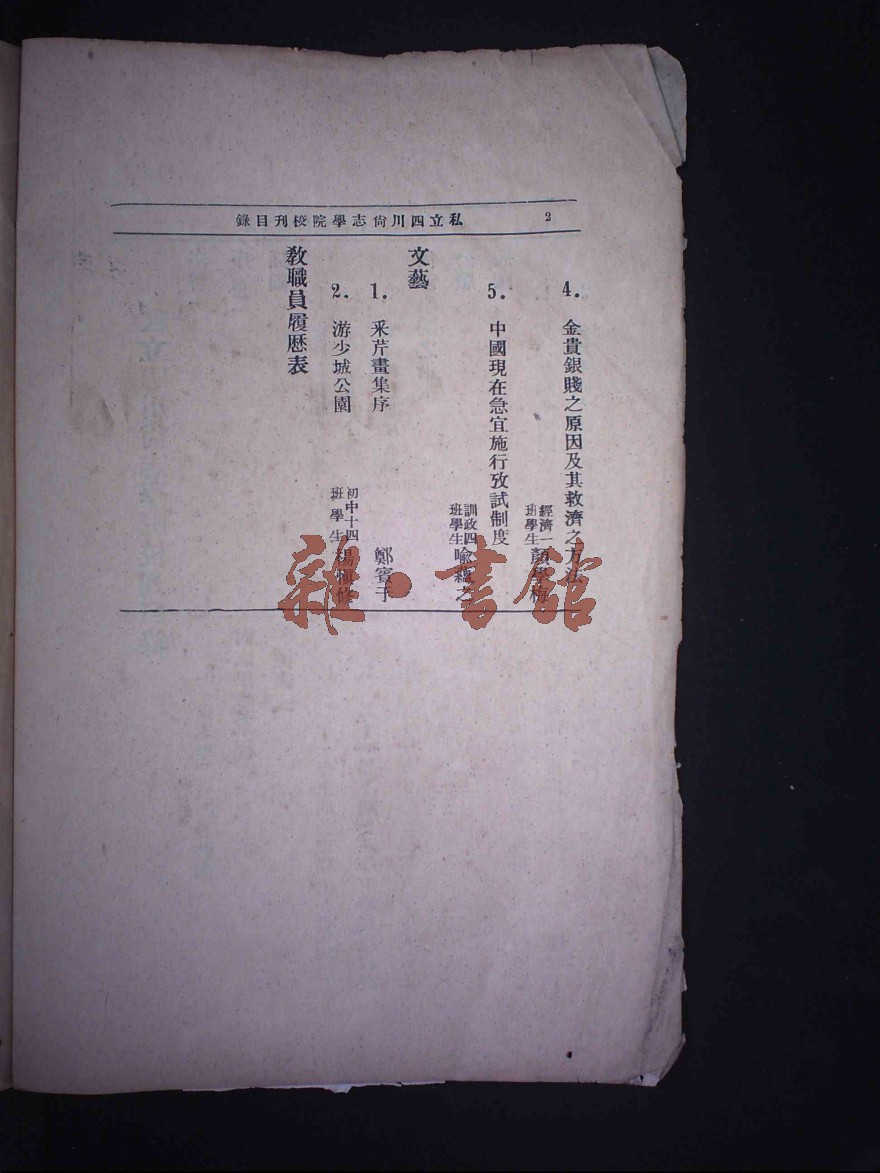 私立四川尙志學院校刊目錄 2
4. 金貴銀賤之原因及其救濟之方法
經濟一
班學生
顏學梅
5. 中國現在急宜施行攷試制度
訓政四
班學生
喩蘊之
文藝
1. 釆芹畫集序
鄭賓于
2. 游少城公園
初中十四
班學生
楊慎修
教職員履歷表
雜·書館